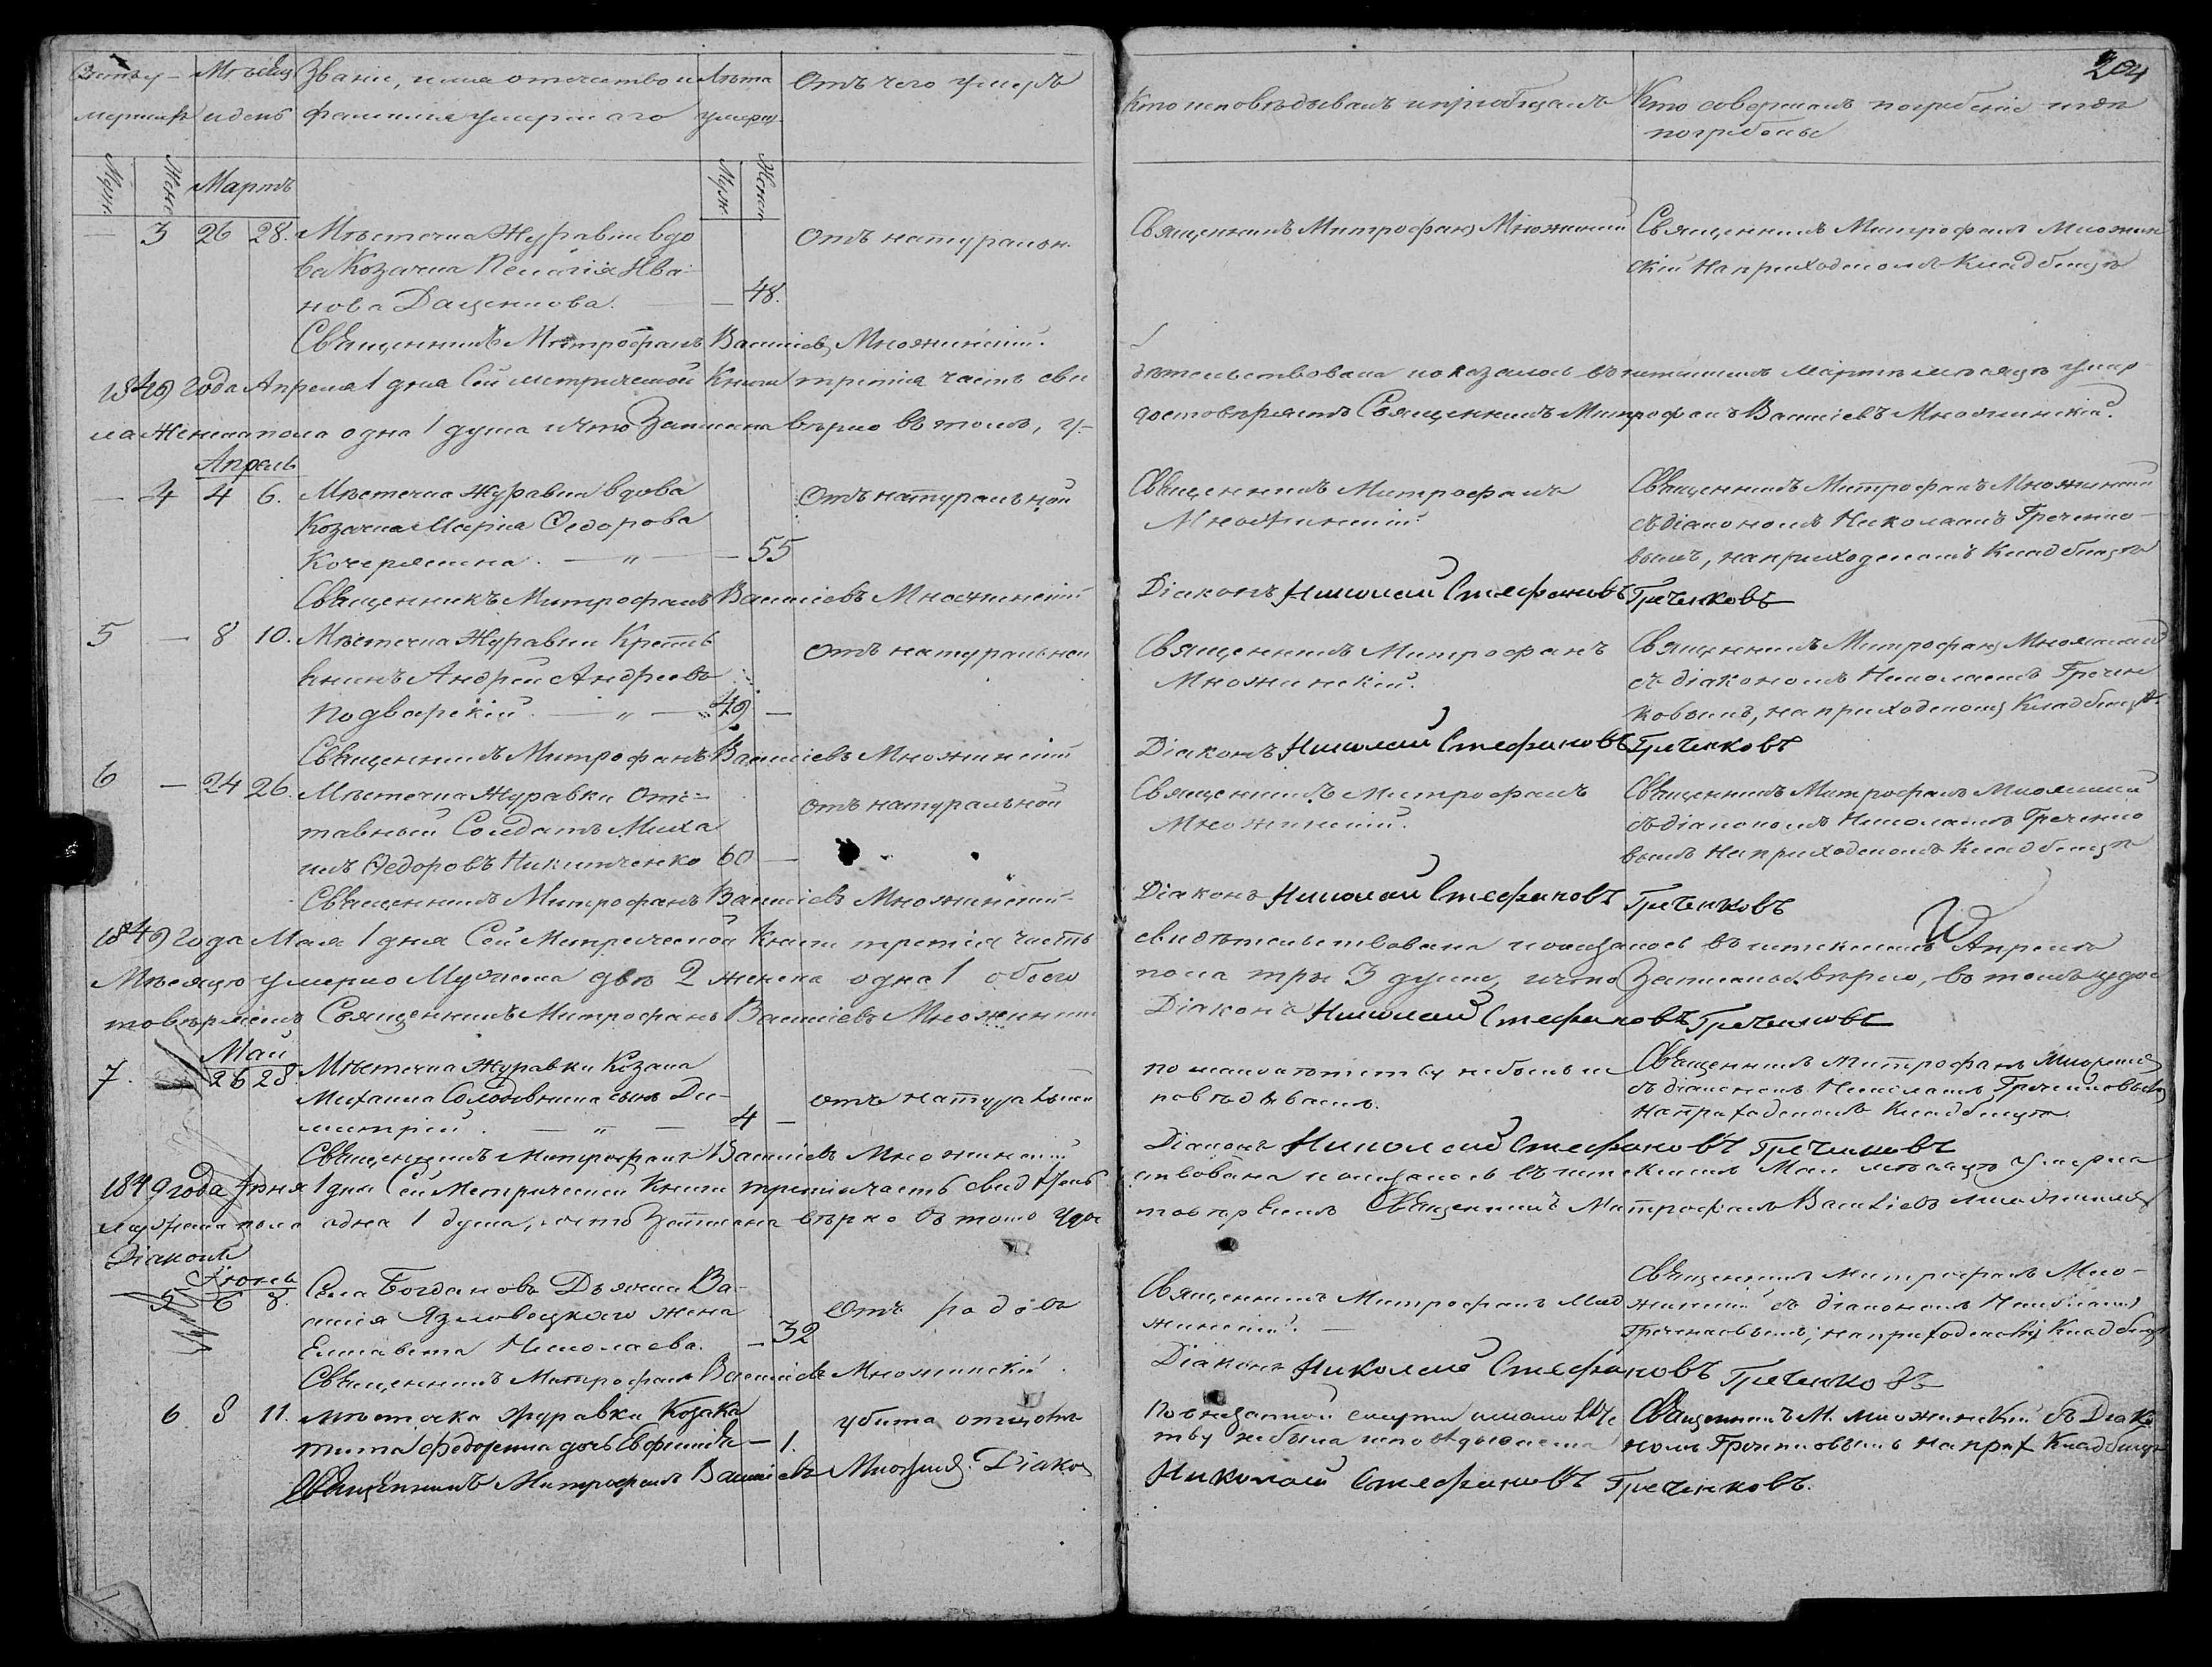 204
Счетъ у- Мѣсяцъ Званіе, имя отечество и Лѣта Отъ чего умеръ
мершихъ и день фамилія умершаго умерш.
Кто исповѣдывалъ и пріобщалъ Кто совершалъ погребеніе и гдѣ
погребены
Муж. Жен. Мартъ Муж. Женск
— 3 26 28. Мѣстечка Журавки вдо
ва Козачка Пелагія Ива-
нова Даценкова. — 48.
Отъ натуральн.
Священникъ Митрофанъ Множинскій
Священникъ Митрофанъ Множин
скій На приходскомъ Кладбищѣ
Священникъ Митрофанъ Василіевъ Множинскій.
1849 года Апреля 1 дня Сей метрической Книги третія часть сви
дѣтельствована и оказалось въ истекшемъ Мартѣ мѣсяцѣ умер
ла Женска пола одна 1 душа и что Записана вѣрно въ томъ, у-
достовѣряетъ Священникъ Митрофанъ Василіевъ Множинскій.
Апрель
— 4 4 6. Мѣстечка Журавки вдова
Козачка Марія Федорова
Кочерлшина. — " — — 55
Отъ натуральной
Священникъ Митрофанъ
Множинскій.
Священникъ Митрофанъ Множинскій
съ діакономъ Николаемъ Греченко-
вымъ, на приходскомъ Кладбищѣ
Священникъ Митрофанъ Василіевъ Множинскій
Діаконъ Николай Стефановъ Греченковъ
5 — 8 10. Мѣстечка Журавки Крестья
нинъ Андрей Андреевъ
Подварскій. — " — 49 —
Отъ натуральной
Священникъ Митрофанъ
Множинскій.
Священникъ Митрофанъ Множинскій
съ діакономъ Николаемъ Гречен
ковымъ, на приходскомъ Кладбищѣ.
Священникъ Митрофанъ Василіевъ Множинскій
Діаконъ Николай Стефановъ Греченковъ
6 — 24 26. Мѣстечка Журавки Отс-
тавный Солдатъ Миха
илъ Федоровъ Никитченко 60 —
Отъ натуральной
Священникъ Митрофанъ
Множинскій.
Священникъ Митрофанъ Множинскій
съ діакономъ Николаемъ Греченко
вымъ На приходскомъ Кладбищѣ
Священникъ Митрофанъ Василіевъ Множинскій
Діаконъ Николай Стефановъ Греченковъ
1849 года Мая 1 дня Сей Метрической Книги третія часть
свидѣтельствована и оказалось въ истекшемъ Апрелѣ
Мѣсяцѣ умерло Мужеска двѣ 2 женска одна 1 обоего
пола три 3 души, и что Записаны вѣрно, въ томъ удос
товѣряемъ Священникъ Митрофанъ Василіевъ Множинскій
Діаконъ Николай Стефановъ Греченковъ
Май
7. 26 28. Мѣстечка Журавки Козака
Михаила Солодовника сынъ Ди-
митрій. — " — 4 —
отъ натуральной
по малолѣтству небылъ ис
повѣдываемъ.
Священникъ Митрофанъ Множинскій
съ діакономъ Николаемъ Греченковымъ
на приходскомъ Кладбищѣ.
Священникъ Митрофанъ Василіевъ Множинскій
Діаконъ Николай Стефановъ Греченковъ
1849 года Іюня 1 дня Сей Метрической Книги третія часть свидѣтель
ствована и оказалось въ истекшемъ Маи мѣсяцѣ умерла
мужеска пола одна 1 душа, и что Записана вѣрно въ томъ удос
товѣряемъ Священникъ Митрофанъ Василіевъ Множинскій
Діаконъ
Іюнь
5 6 8. Села Богдановъ Дьячка Ва-
силія Язловецкаго жена
Елисавета Николаева. — 32
Отъ родовъ
Священникъ Митрофанъ Мно
жинскій. —
Священникъ Митрофанъ Мно-
жинскій съ діакономъ Николаемъ
Греченковымъ, на приходскомъ Кладбищѣ
Священникъ Митрофанъ Василіевъ Множинскій.
Діаконъ Николай Стефановъ Греченковъ
6 8 11. мѣстечка Журавки Козака
Тита Федоренка дочь Евфимія — 1.
убита
По внезапной смерти и малолѣтс
тву небыла исповѣдываема
Священникъ М. Множинскій съ Діако
номъ Греченковымъ на прих Кладбищѣ
Священникъ Митрофанъ Василіевъ Множинскій. Діаконъ
Николай Стефановъ Греченковъ.